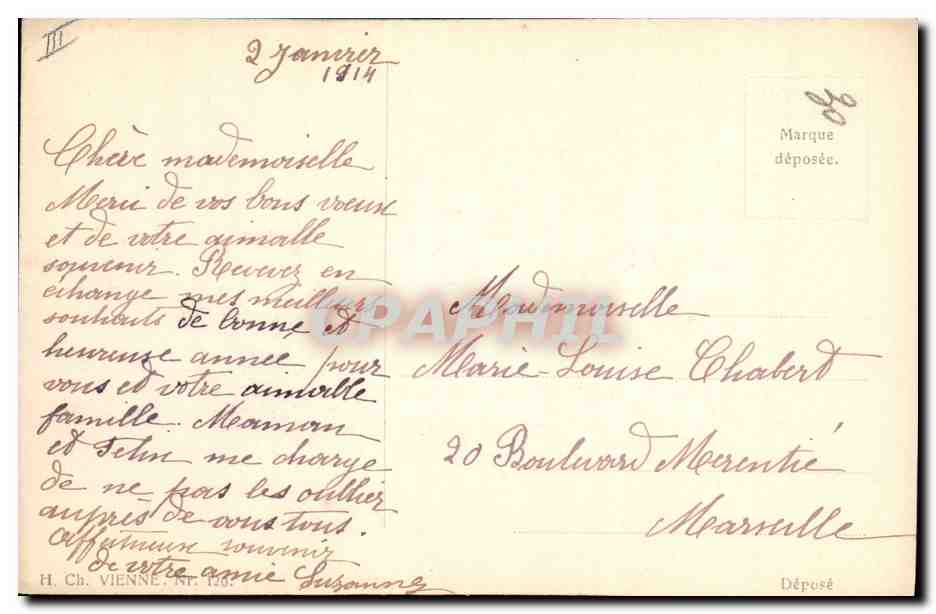 III
2 Janvier
1914
Chère mademoiselle
Merci de vos bons voeux
et de votre aimable
souvenir. Recevez en
échange mes meilleurs
souhaits de bonne et
heureuse année pour
vous et votre aimable
famille. Maman
et me charge
de ne pas les oublier
auprès de vous tous.
Affectueux souvenir
de votre amie Suzanne
H. Ch. VIENNE. Nr. 126.
Marque
déposée.
CPAPHIL
Mademoiselle
Marie-Louise Chabert
20 Boulevard Merentié
Marseille
Déposé